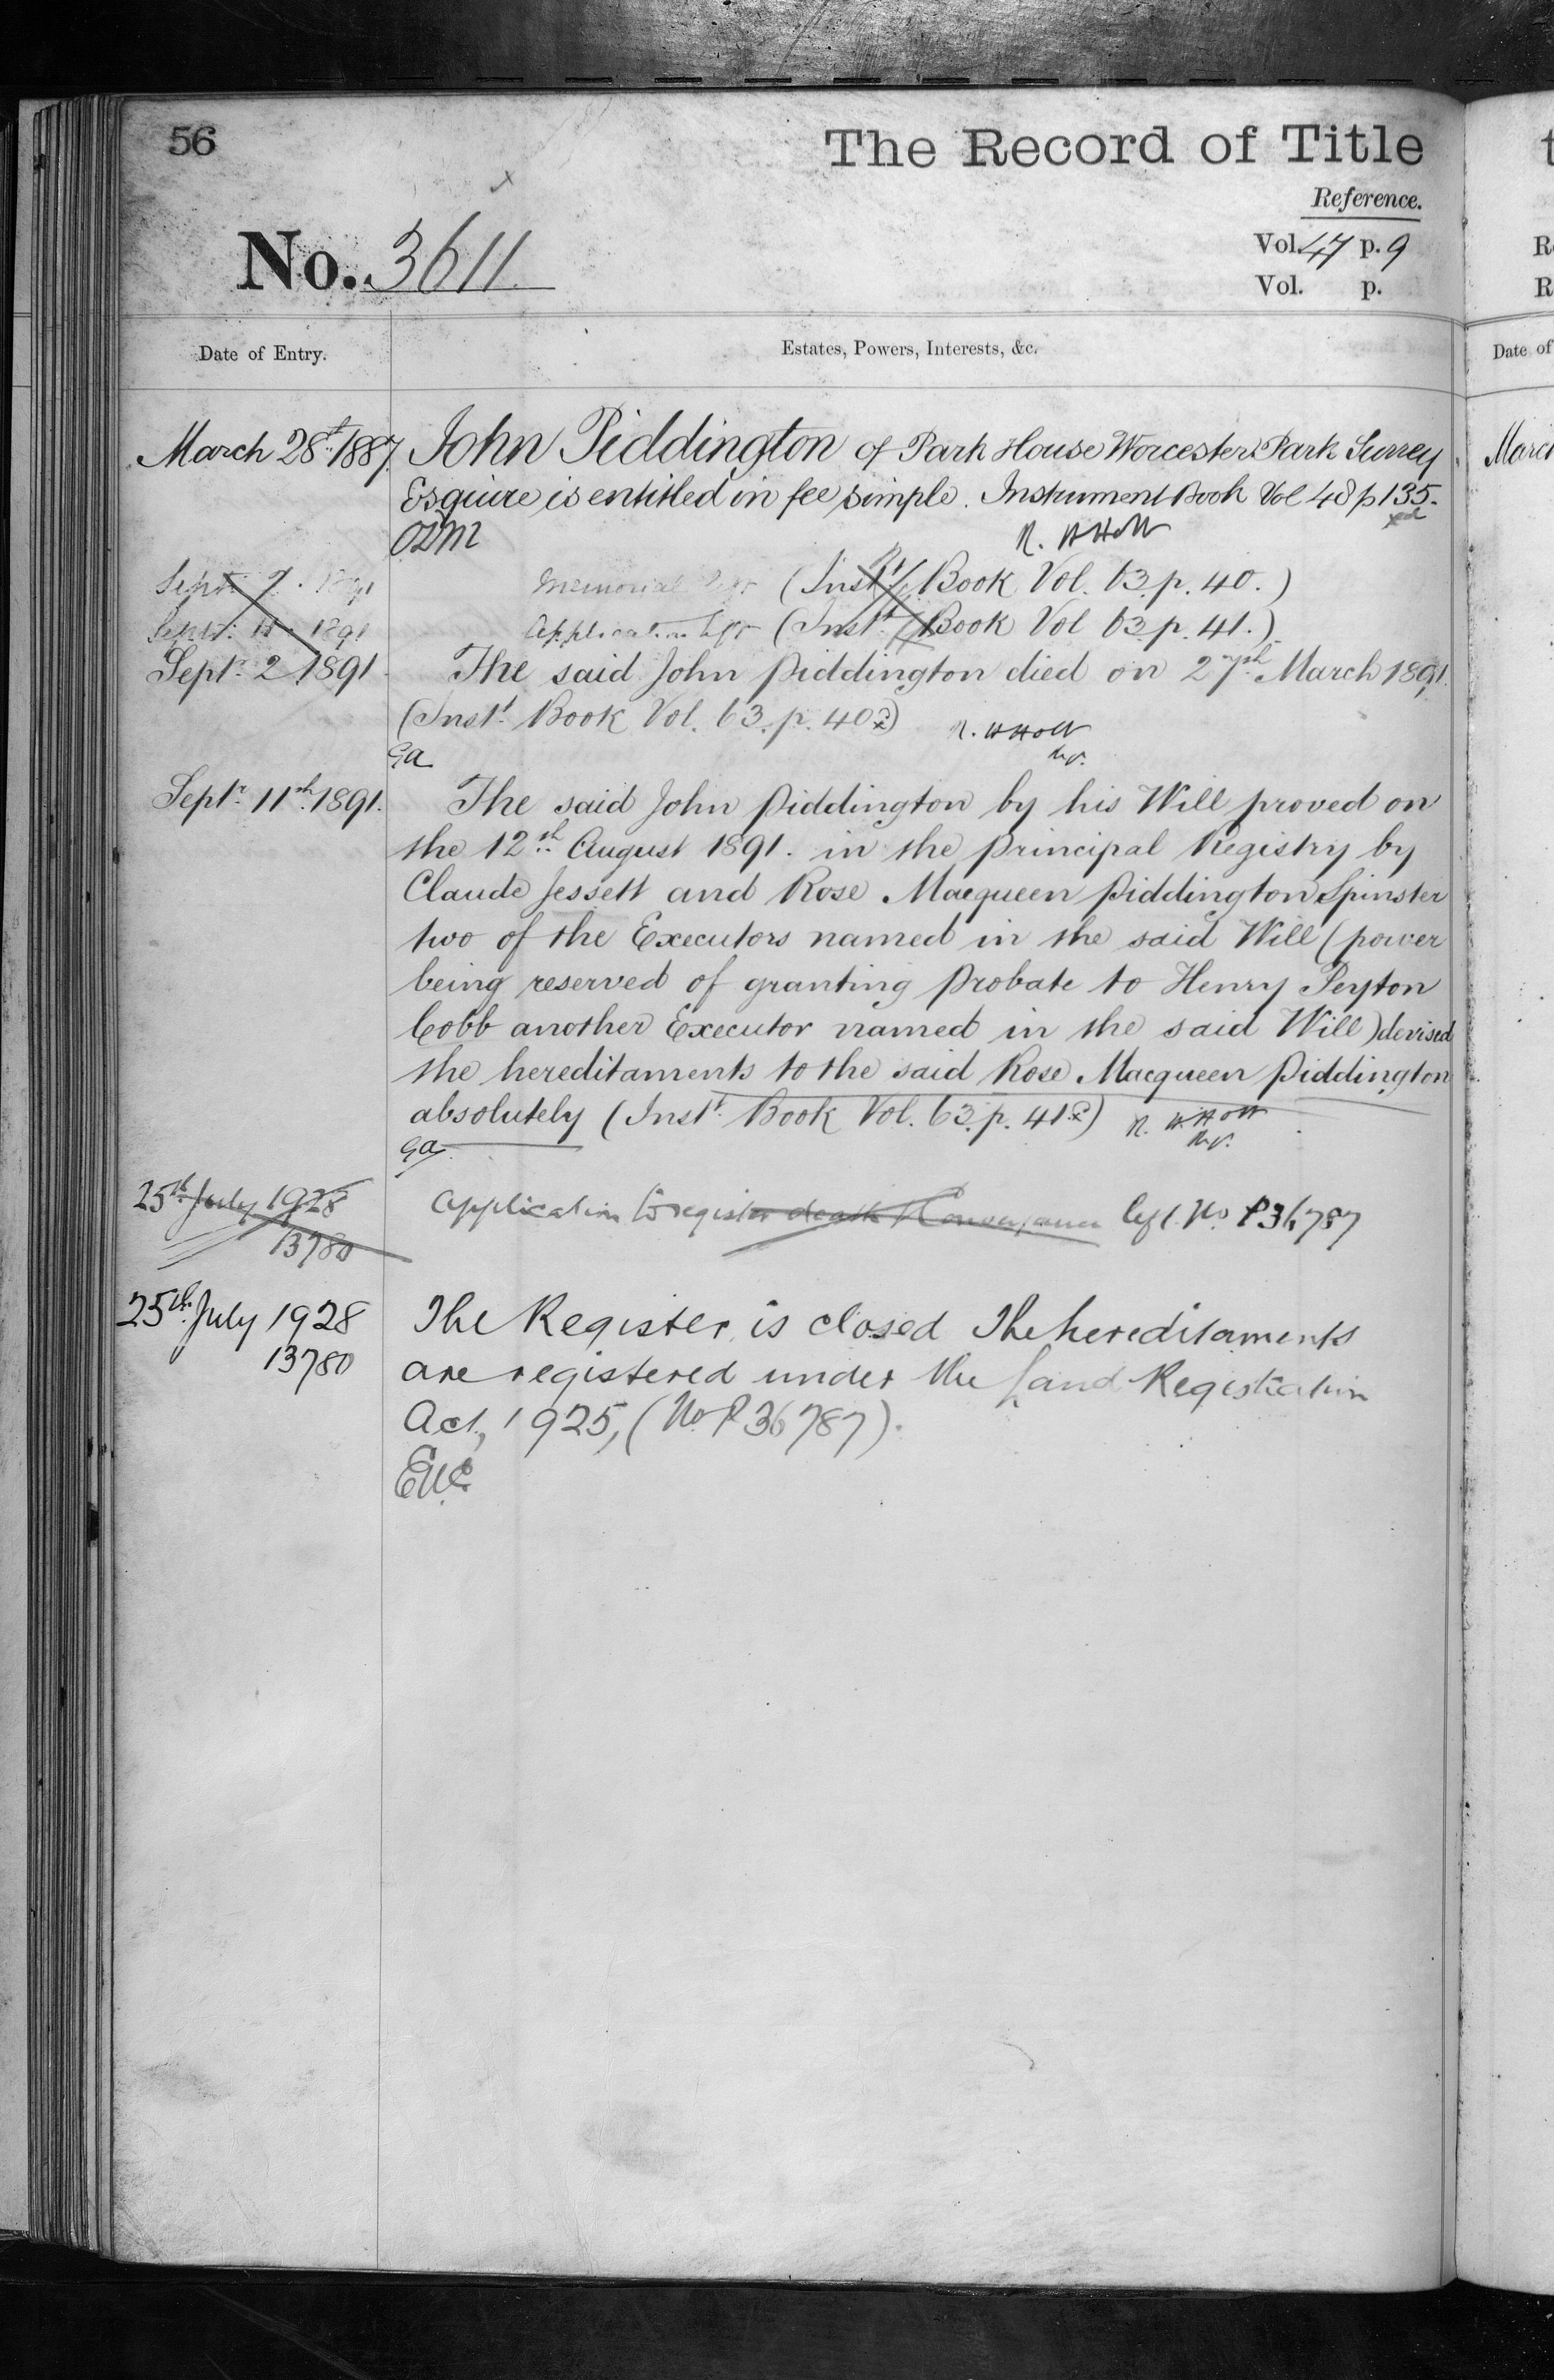 56
The Record of Title
Reference.
No. 3611
Vol. 47 p. 9
Vol. p.
Date of Entry.
Estates, Powers, Interests, &c.
Date of
March 28th 1887. John Piddington of Park House Worcester Park Surrey
Esquire is entitled in fee simple. Instrument Book Vol 48 p 135.
ODM R. H Holt
Sept. 7. 1891 Memorial left (Inst. Book Vol. 63. p. 40.)
Sept. 11. 1891 Application left (Inst. Book Vol 63. p. 41.)
Sept. 2 1891 The said John Piddington died on 27th March 1891.
(Inst. Book Vol. 63. p. 40) R. H Holt
Ga
Septr. 11th 1891. The said John Piddington by his Will proved on
the 12th August 1891. in the Principal Registry by
Claude Jessett and Rose Macqueen Piddington Spinster
two of the Executors named in the said Will (power
being reserved of granting Probate to Henry Peyton
Cobb another Executor named in the said Will) devised
the hereditaments to the said Rose Macqueen Piddington
absolutely (Inst. Book Vol. 63. p. 41) R. H Holt
Ga
25th July 1928 Application to register death & Conveyance left. No. P36787
13780
25th July 1928 The Register is closed The hereditaments
13780 are registered under the Land Registration
Act, 1925, (No. P36787).